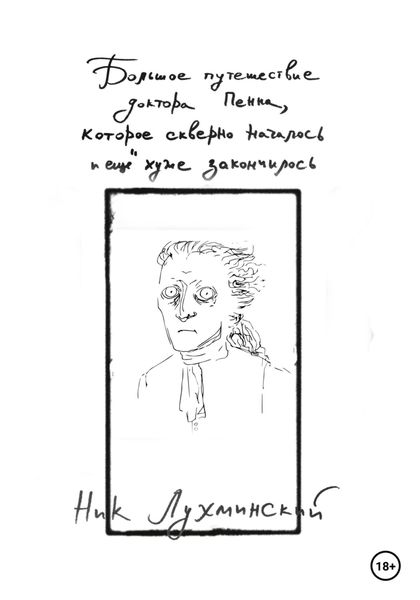 Большое путешествие
доктора Пенна,
которое скверно началось
и ещё хуже закончилось
Ник Лухминский
18+